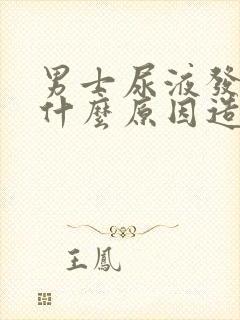 男士尿液發
什麼原因造
王鳳